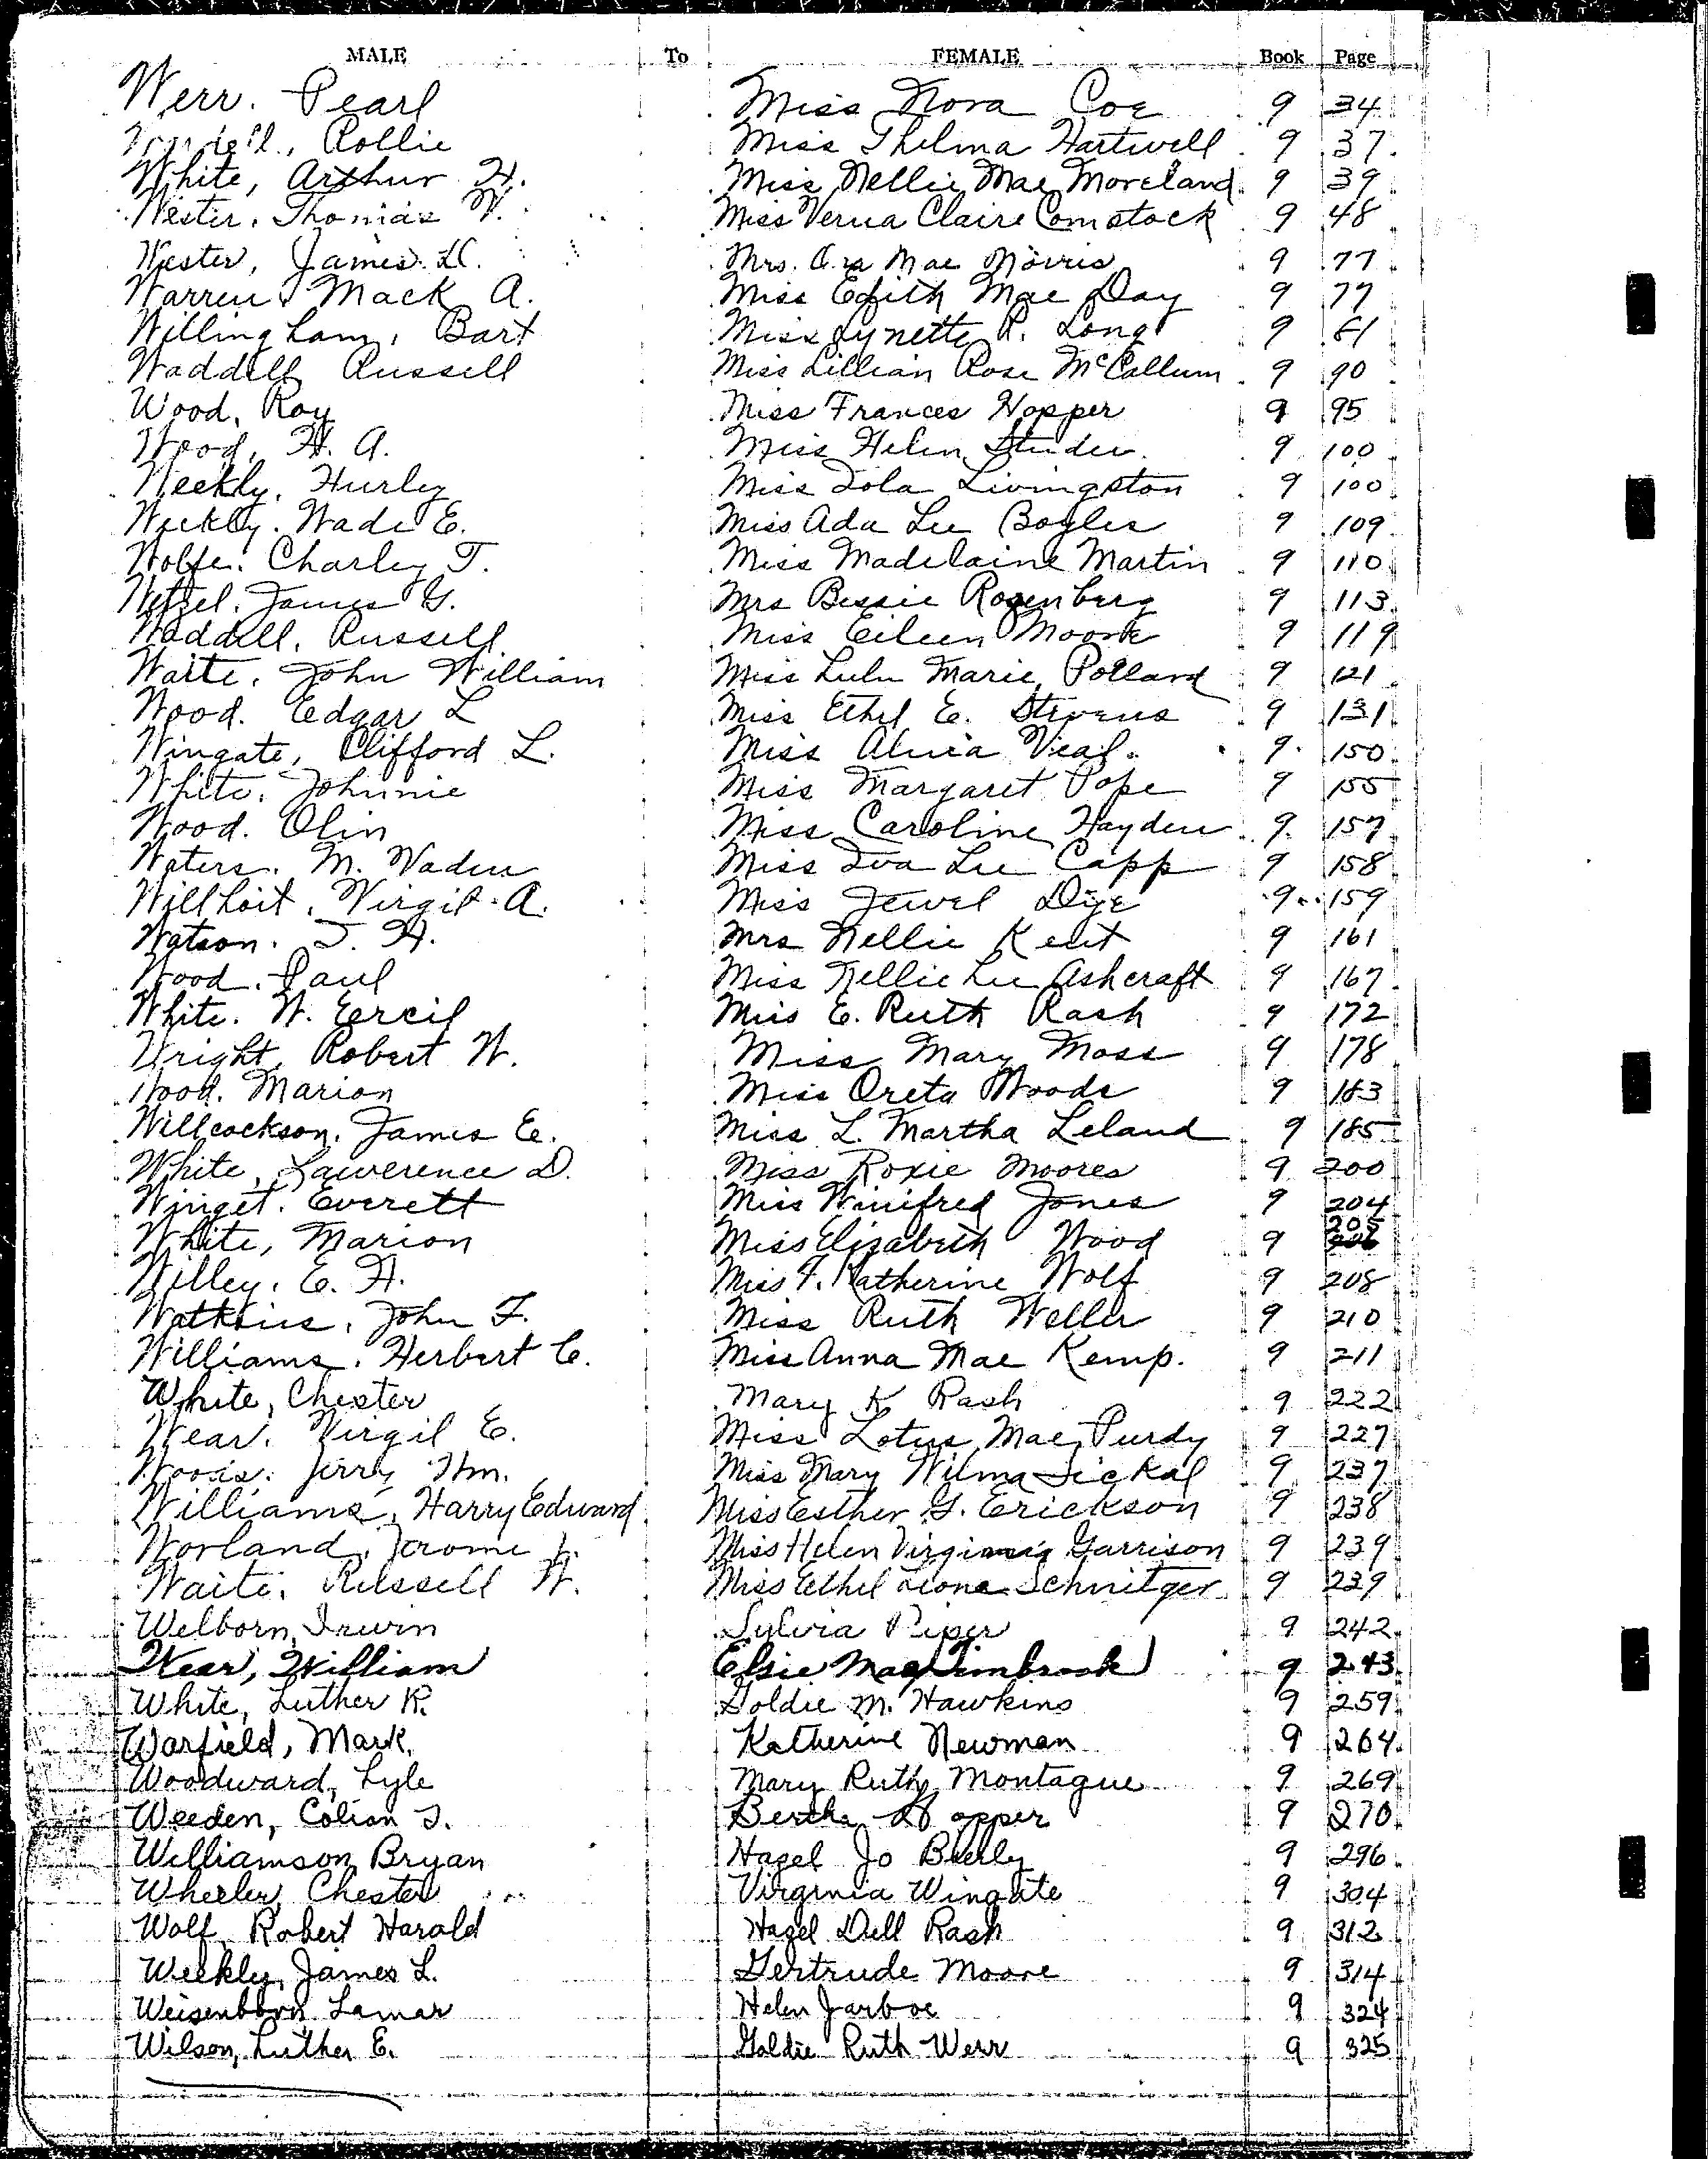 MALE To FEMALE Book Page
Werr. Pearl Miss Nora Coe 9 34
Rollie Miss Thelma Hartwell 9 37
White, Arthur H. Miss Nellie Mae Moreland 9 39
Wester, Thomas W. Miss Verna Claire Comstock 9 48
Wester, James Mrs. Mae Morris 9 77
Warren, Mack A. Miss Edith Mae Day 9 77
Willingham, Bart Miss Lynette R. Long 9
Waddell, Russell Miss Lillian Rose McCallum 9 90
Wood, Roy Miss Frances Hopper 9 95
Wood, H. A. Miss Helen Studer 9 100
Weekly, Hurley Miss Iola Livingston 9 100
Weekly, Wade E. Miss Ada Lee Boyles 9 109
Wolfe. Charley T. Miss Madelaine Martin 9 110
Wetzel. James G. Mrs Bessie Rosenberg 9 113
Waddell, Russell Miss Eileen Moore 9 119
Waite. John William Miss Lulu Marie Pollard 9 121
Wood. Edgar L Miss Ethel E. Stevens 9 131
Wingate, Clifford L. Miss Veal 9 150
White. Johnnie Miss Margaret Pope 9 155
Wood. Olin Miss Caroline Hayden 9 157
Waters. M. Waden Miss Iva Lee Capp 9 158
Willhoit, Virgil A. Miss Jewel Dye 9 159
Watson. T. H. Mrs Nellie Kent 9 161
Wood. Paul Miss Nellie Lee Ashcraft 9 167
White. W. Eercil Miss E. Ruth Rash 9 172
Wright, Robert W. Miss Mary Moss 9 178
Wood. Marion Miss Oreta Woods 9 183
Willcockson. James E. Miss L. Martha Leland 9 185
White, Lawerence D. Miss Roxie Moores 9 200
Winget. Everett Miss Winifred Jones 9 204
White, Marion Miss Elizabeth Wood 9 205
Willey. E. H. Miss F. Katherine Wolf 9 208
Watkins, John F. Miss Ruth Weller 9 210
Williams. Herbert C. Miss Anna Mae Kemp. 9 211
White, Chester Mary K Rash 9 222
Wear. Virgil E. Miss Lotus Mae Purdy 9 227
Woods. Jerry Wm. Miss Mary Wilma Sickal 9 237
Williams, Harry Edward Miss Esther G. Erickson 9 238
Worland, Jerome Miss Helen Virginia Garrison 9 239
Waite. Russell W. Miss Ethel Leone Schnitger 9 239
Welborn, Irwin Sylvia Piper 9 242
Wear, William Elsie Mae Timbrook 9 243
White, Luther R. Goldie M. Hawkins 9 259
Warfield, Mark. Katherine Newman 9 264
Woodward, Lyle Mary Ruth Montague 9 269
Weeden, Colion T. Bertha Hopper 9 270
Williamson, Bryan Hazel Jo Bierly 9 296
Wheeler, Chester Virginia Wingate 9 304
Wolf, Robert Harold Hazel Dell Rash 9 312
Weekley, James L. Gertrude Moore 9 314
Weisenborn Lamar Helen Jarboe 9 324
Wilson, Luther E. Goldie Ruth Werr 9 325